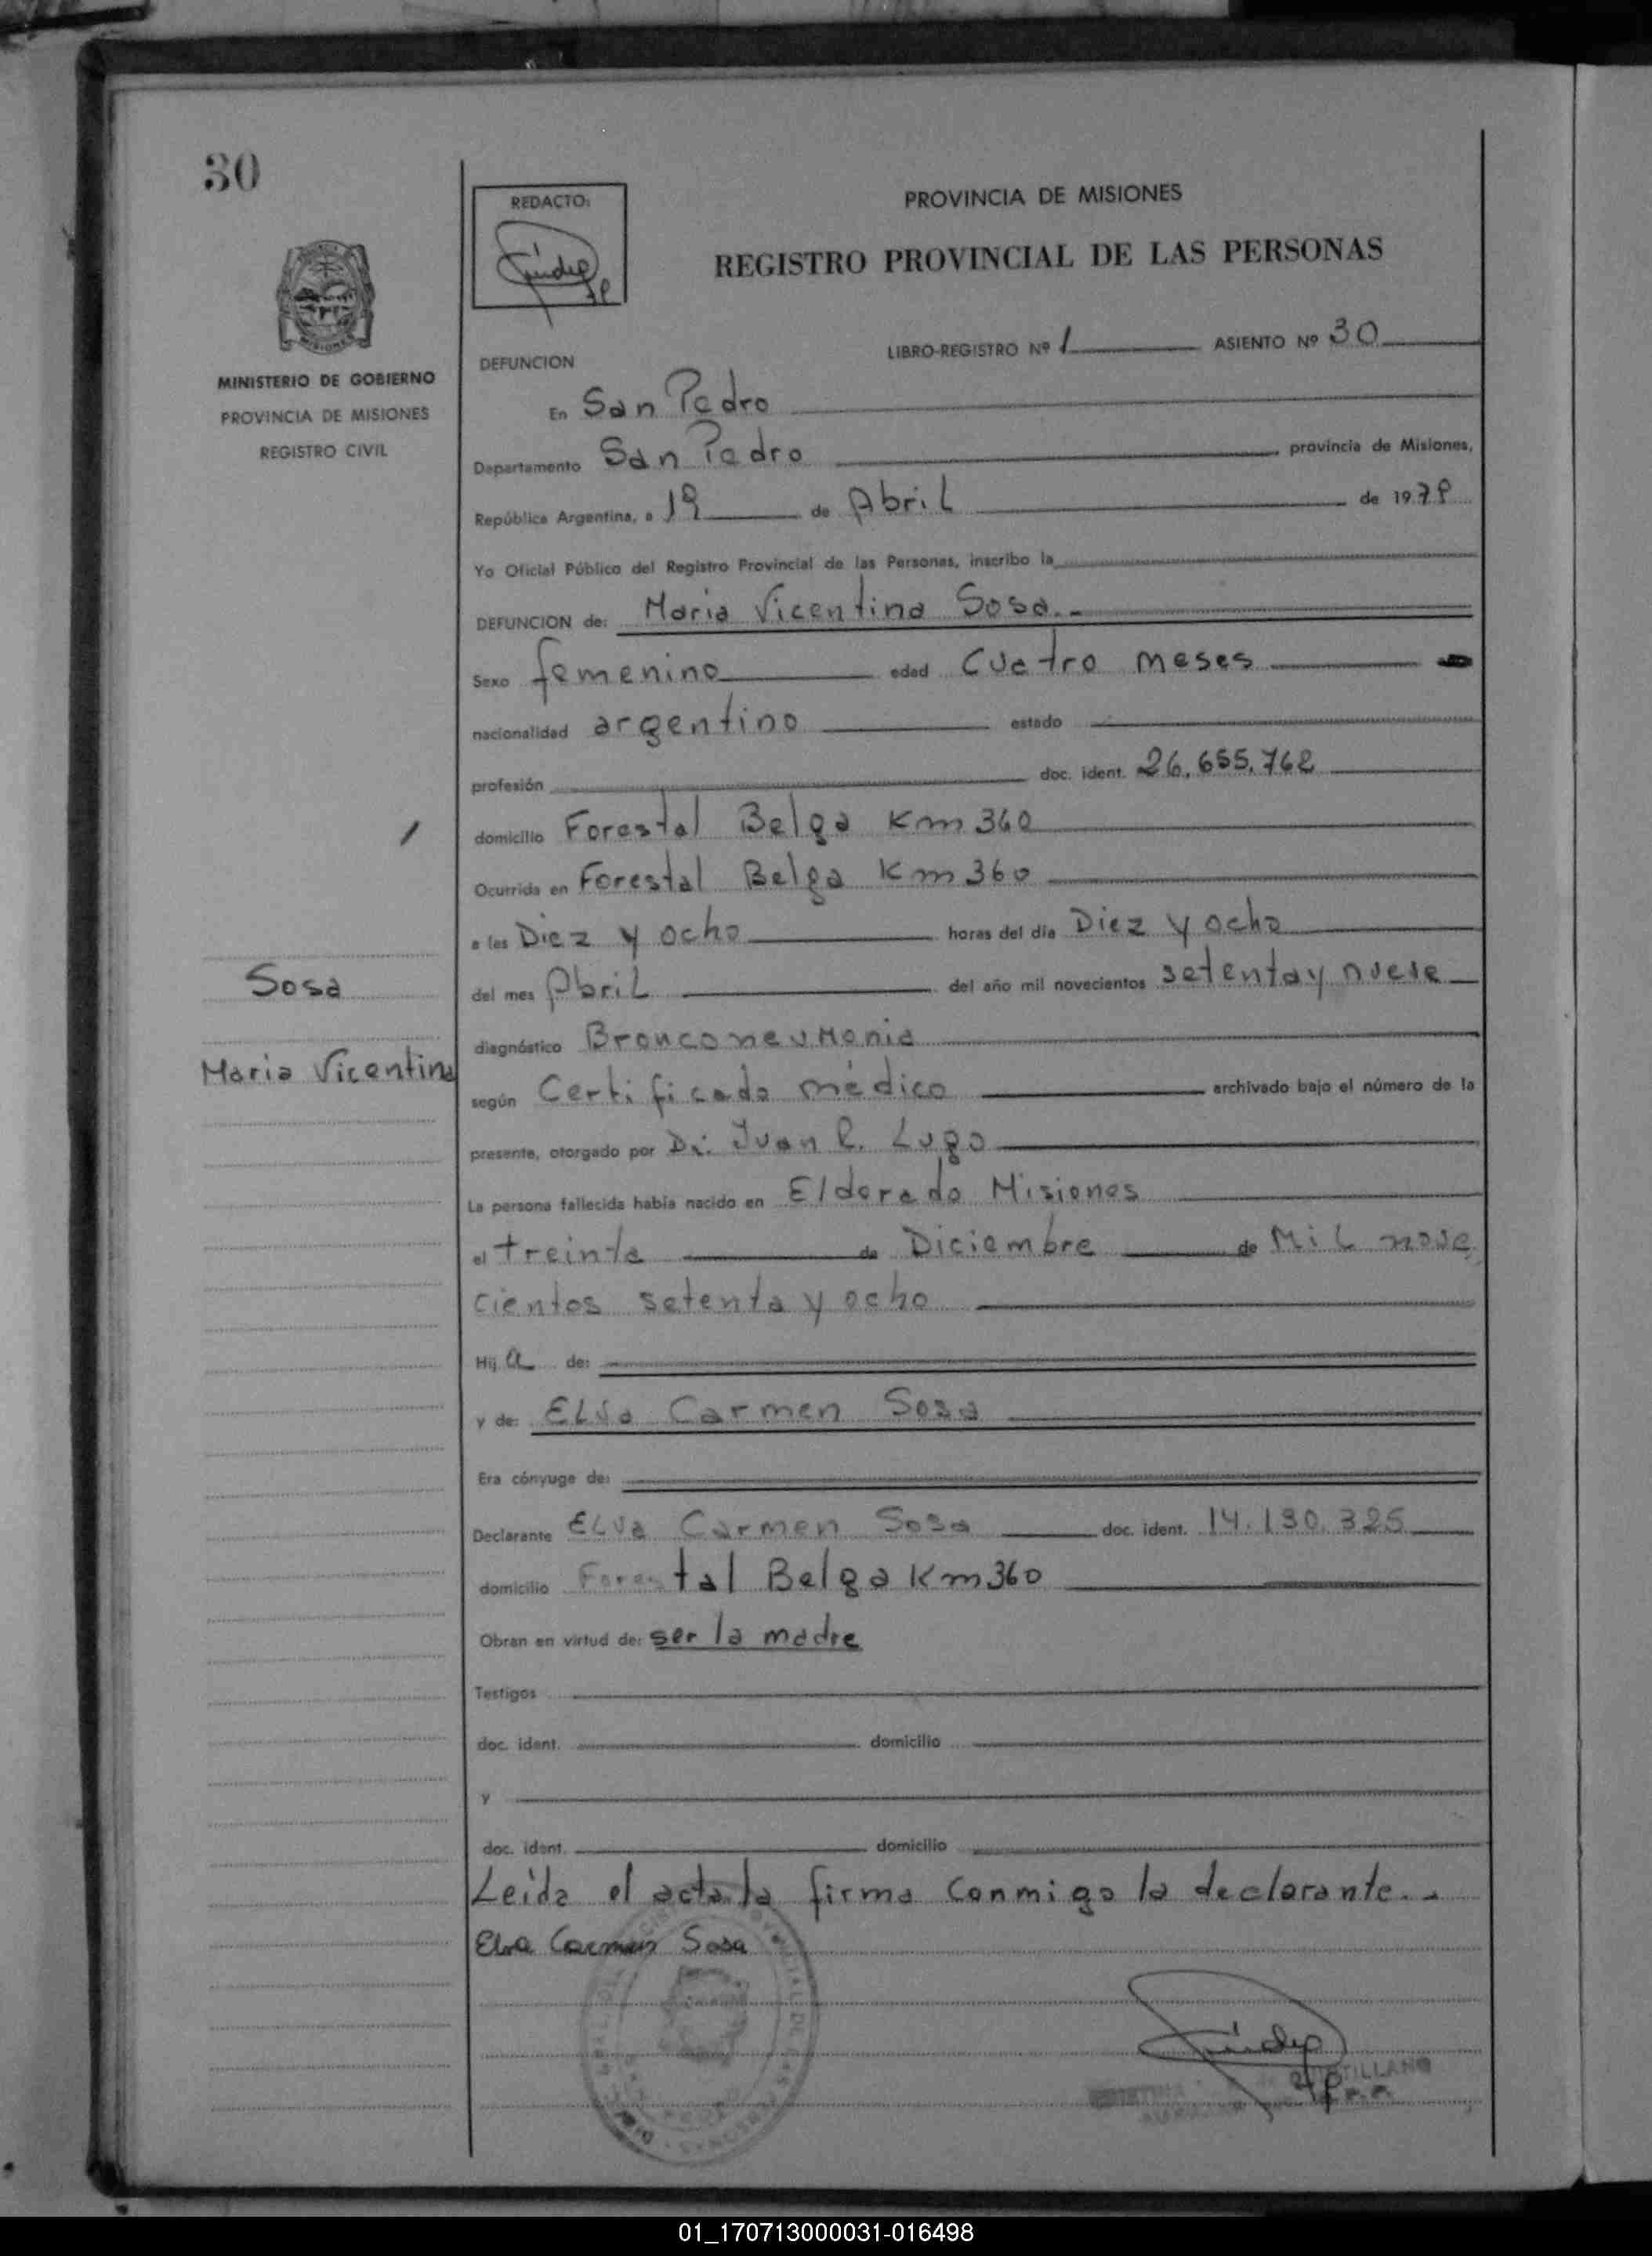 30
REDACTO:
PROVINCIA DE MISIONES
REGISTRO PROVINCIAL DE LAS PERSONAS
LIBRO-REGISTRO Nº 1 ASIENTO Nº 30
MINISTERIO DE GOBIERNO
PROVINCIA DE MISIONES
REGISTRO CIVIL
DEFUNCION
En San Pedro
Departamento San Pedro provincia de Misiones,
República Argentina, a 19 de Abril de 1979
Yo Oficial Público del Registro Provincial de las Personas, inscribo la
DEFUNCION de: Maria Vicentina Sosa.-
Sexo femenino edad Cuatro meses
nacionalidad argentino estado
profesión doc. ident. 26.655.762
domicilio Forestal Belga Km 360
Ocurrida en Forestal Belga Km 360
a las Diez y ocho horas del día Diez y ocho
Sosa
del mes Abril del año mil novecientos setenta y nueve
diagnóstico Bronconeumonia
Maria Vicentina
según Certificado médico archivado bajo el número de la
presente, otorgado por Dr. Juan R. Lugo
La persona fallecida había nacido en Eldorado Misiones
el treinta de Diciembre de Mil nove
cientos setenta y ocho
Hij a de:
y de: Elva Carmen Sosa
Era cónyuge de:
Declarante Elva Carmen Sosa doc. ident. 14.130.325
domicilio Forestal Belga Km 360
Obran en virtud de: ser la madre
Testigos
doc. ident. domicilio
y
doc. ident. domicilio
Leida el acta la firma conmigo la declarante.-
Elva Carmen Sosa
01_170713000031-016498